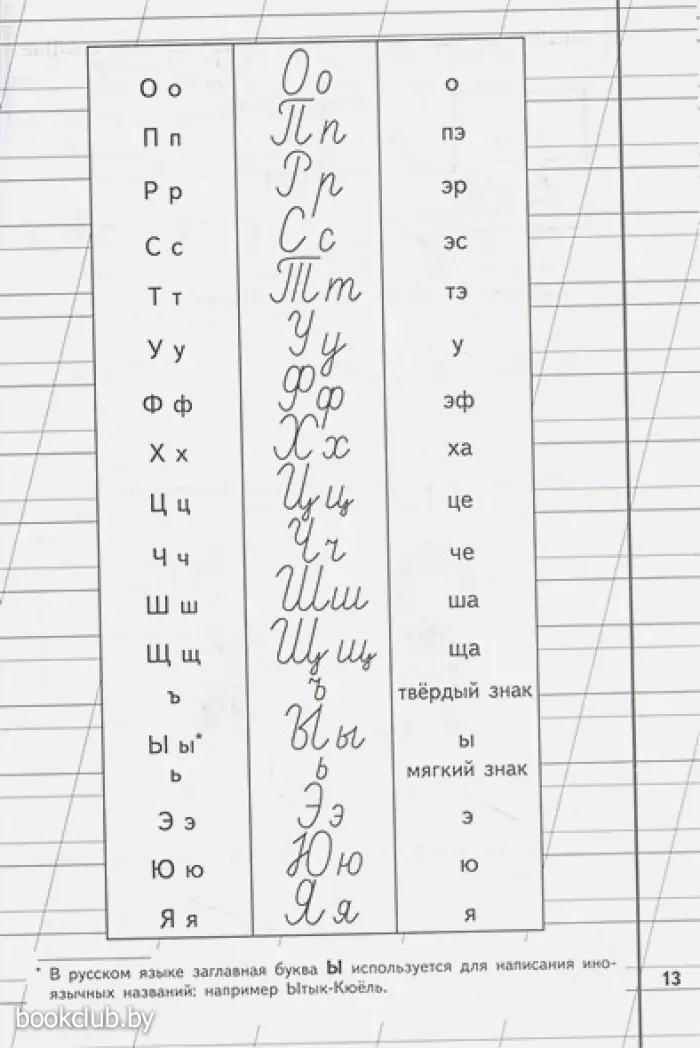 О о Оо о
П п Пп пэ
Р р Рр эр
С с Сс эс
Т т Тт тэ
У у Уу у
Ф ф Фф эф
Х х Хх ха
Ц ц Цц це
Ч ч Чч че
Ш ш Шш ша
Щ щ Щщ ща
ъ ъ твёрдый знак
Ы ы* Ыы ы
ь ь мягкий знак
Э э Ээ э
Ю ю Юю ю
Я я Яя я
* В русском языке заглавная буква Ы используется для написания ино-
язычных названий: например Ытык-Кюёль.
13
bookclub.by